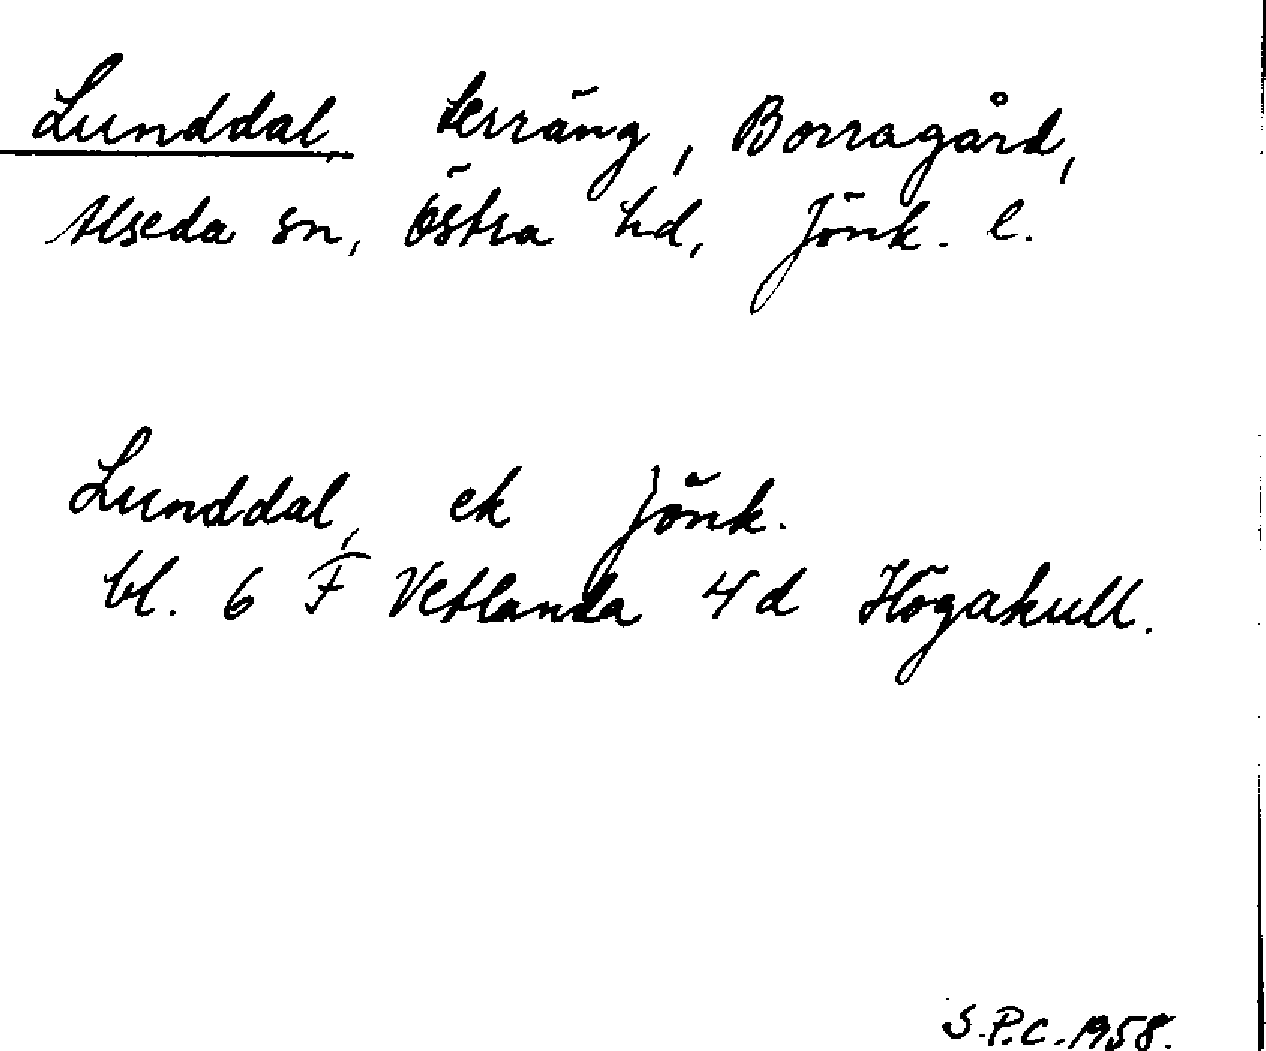 Lunddal, terräng, Borragård,
Alseda sn, Östra hd, Jönk. l.
Lunddal, ek Jönk.
bl. 6 F Vetlanda 4d Högakull.
S.P.C. 1958.